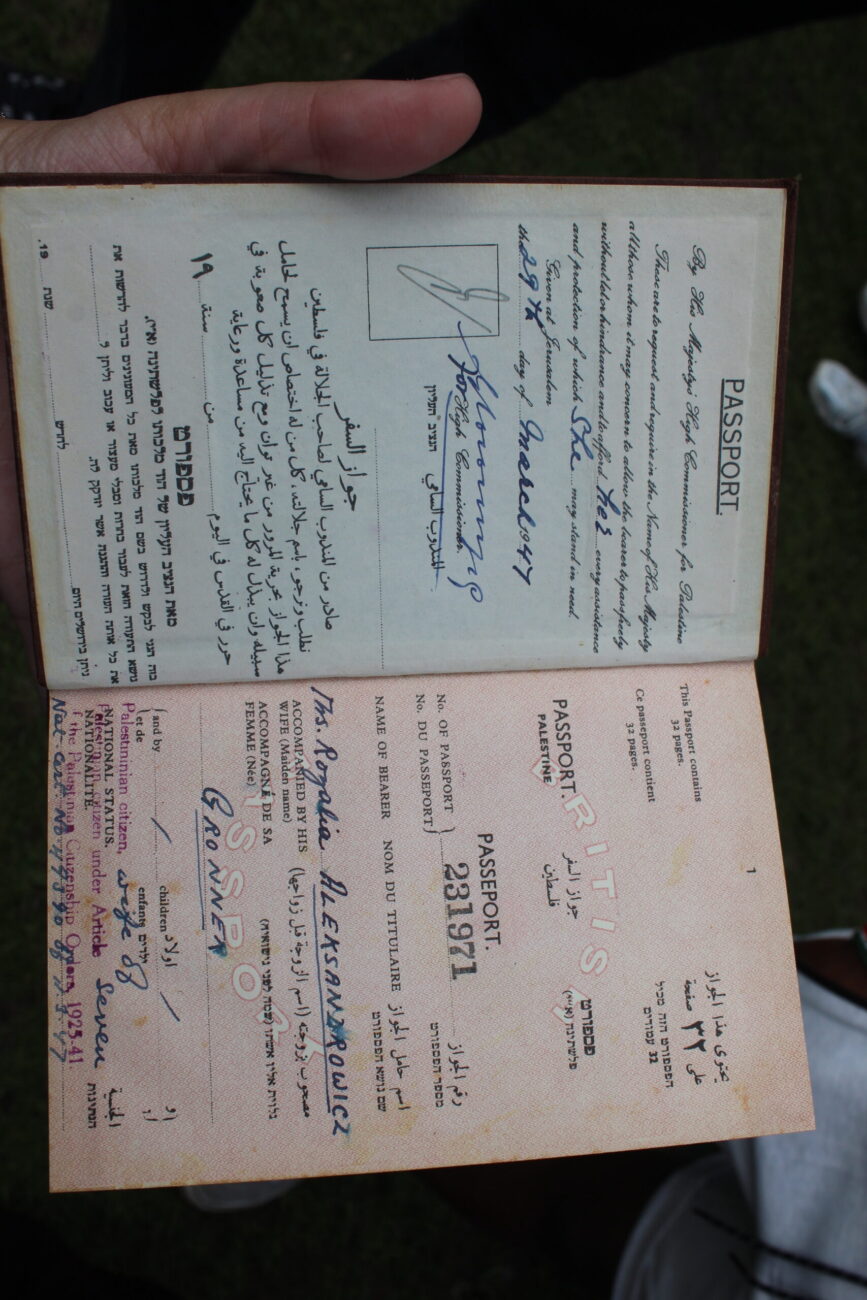 PASSPORT.
By His Majesty's High Commissioner for Palestine
These are to request and require in the Name of His Majesty
all those whom it may concern to allow the bearer to pass freely
without let or hindrance and to afford her every assistance
and protection of which She may stand in need.
Given at Jerusalem
the 29th day of March 1947
for High Commissioner.
הנציב העליון
المندوب السامي
جواز السفر
صادر من المندوب السامي لصاحب الجلالة في فلسطين
نطلب ونرجو، باسم جلالته، كل من له اختصاص ان يسمح لحامل
هذا الجواز بحرية المرور من غير توان ومع تذليل كل صعوبة في
سبيله وان يبذل له كل ما يحتاج اليه من مساعدة ورعاية
حرر في القدس في اليوم من سنة ١٩
פספורט
מאת הנציב העליון של הוד מלכותו לפלשתינה (א״י).
ניתן בירושלים היום לחדש שנת 19.
1
This Passport contains
32 pages.
Ce passeport contient
32 pages.
يحتوي هذا الجواز
على ٣٢ صفحة
הפספורט הזה מכיל
32 עמודים
BRITISH
PASSPORT.
PALESTINE
جواز السفر
فلسطين
פספורט
פלשתינה (א״י)
PASSEPORT.
No. OF PASSPORT
No. DU PASSEPORT
231971
رقم الجواز
מספר הפספורט
NAME OF BEARER
NOM DU TITULAIRE
اسم حامل الجواز
שם נושא הפספורט
Mrs. Rozalia ALEKSANDROWICZ
ACCOMPANIED BY HIS
WIFE (Maiden name)
ACCOMPAGNÉ DE SA
FEMME (Née)
مصحوب بزوجته (اسم الزوجة قبل زواجها)
בלוית אשתו (שמה לפני נישואיה)
PASSPORT
GRONNER
and by
et de
/ children
enfants
اولاد
ילדים
/
و
ו
Palestinian citizen, wife of
NATIONAL STATUS.
NATIONALITÉ.
الجنسية
הנתינות
Palestinian citizen under Article Seven
of the Palestinian Citizenship Orders, 1925-41.